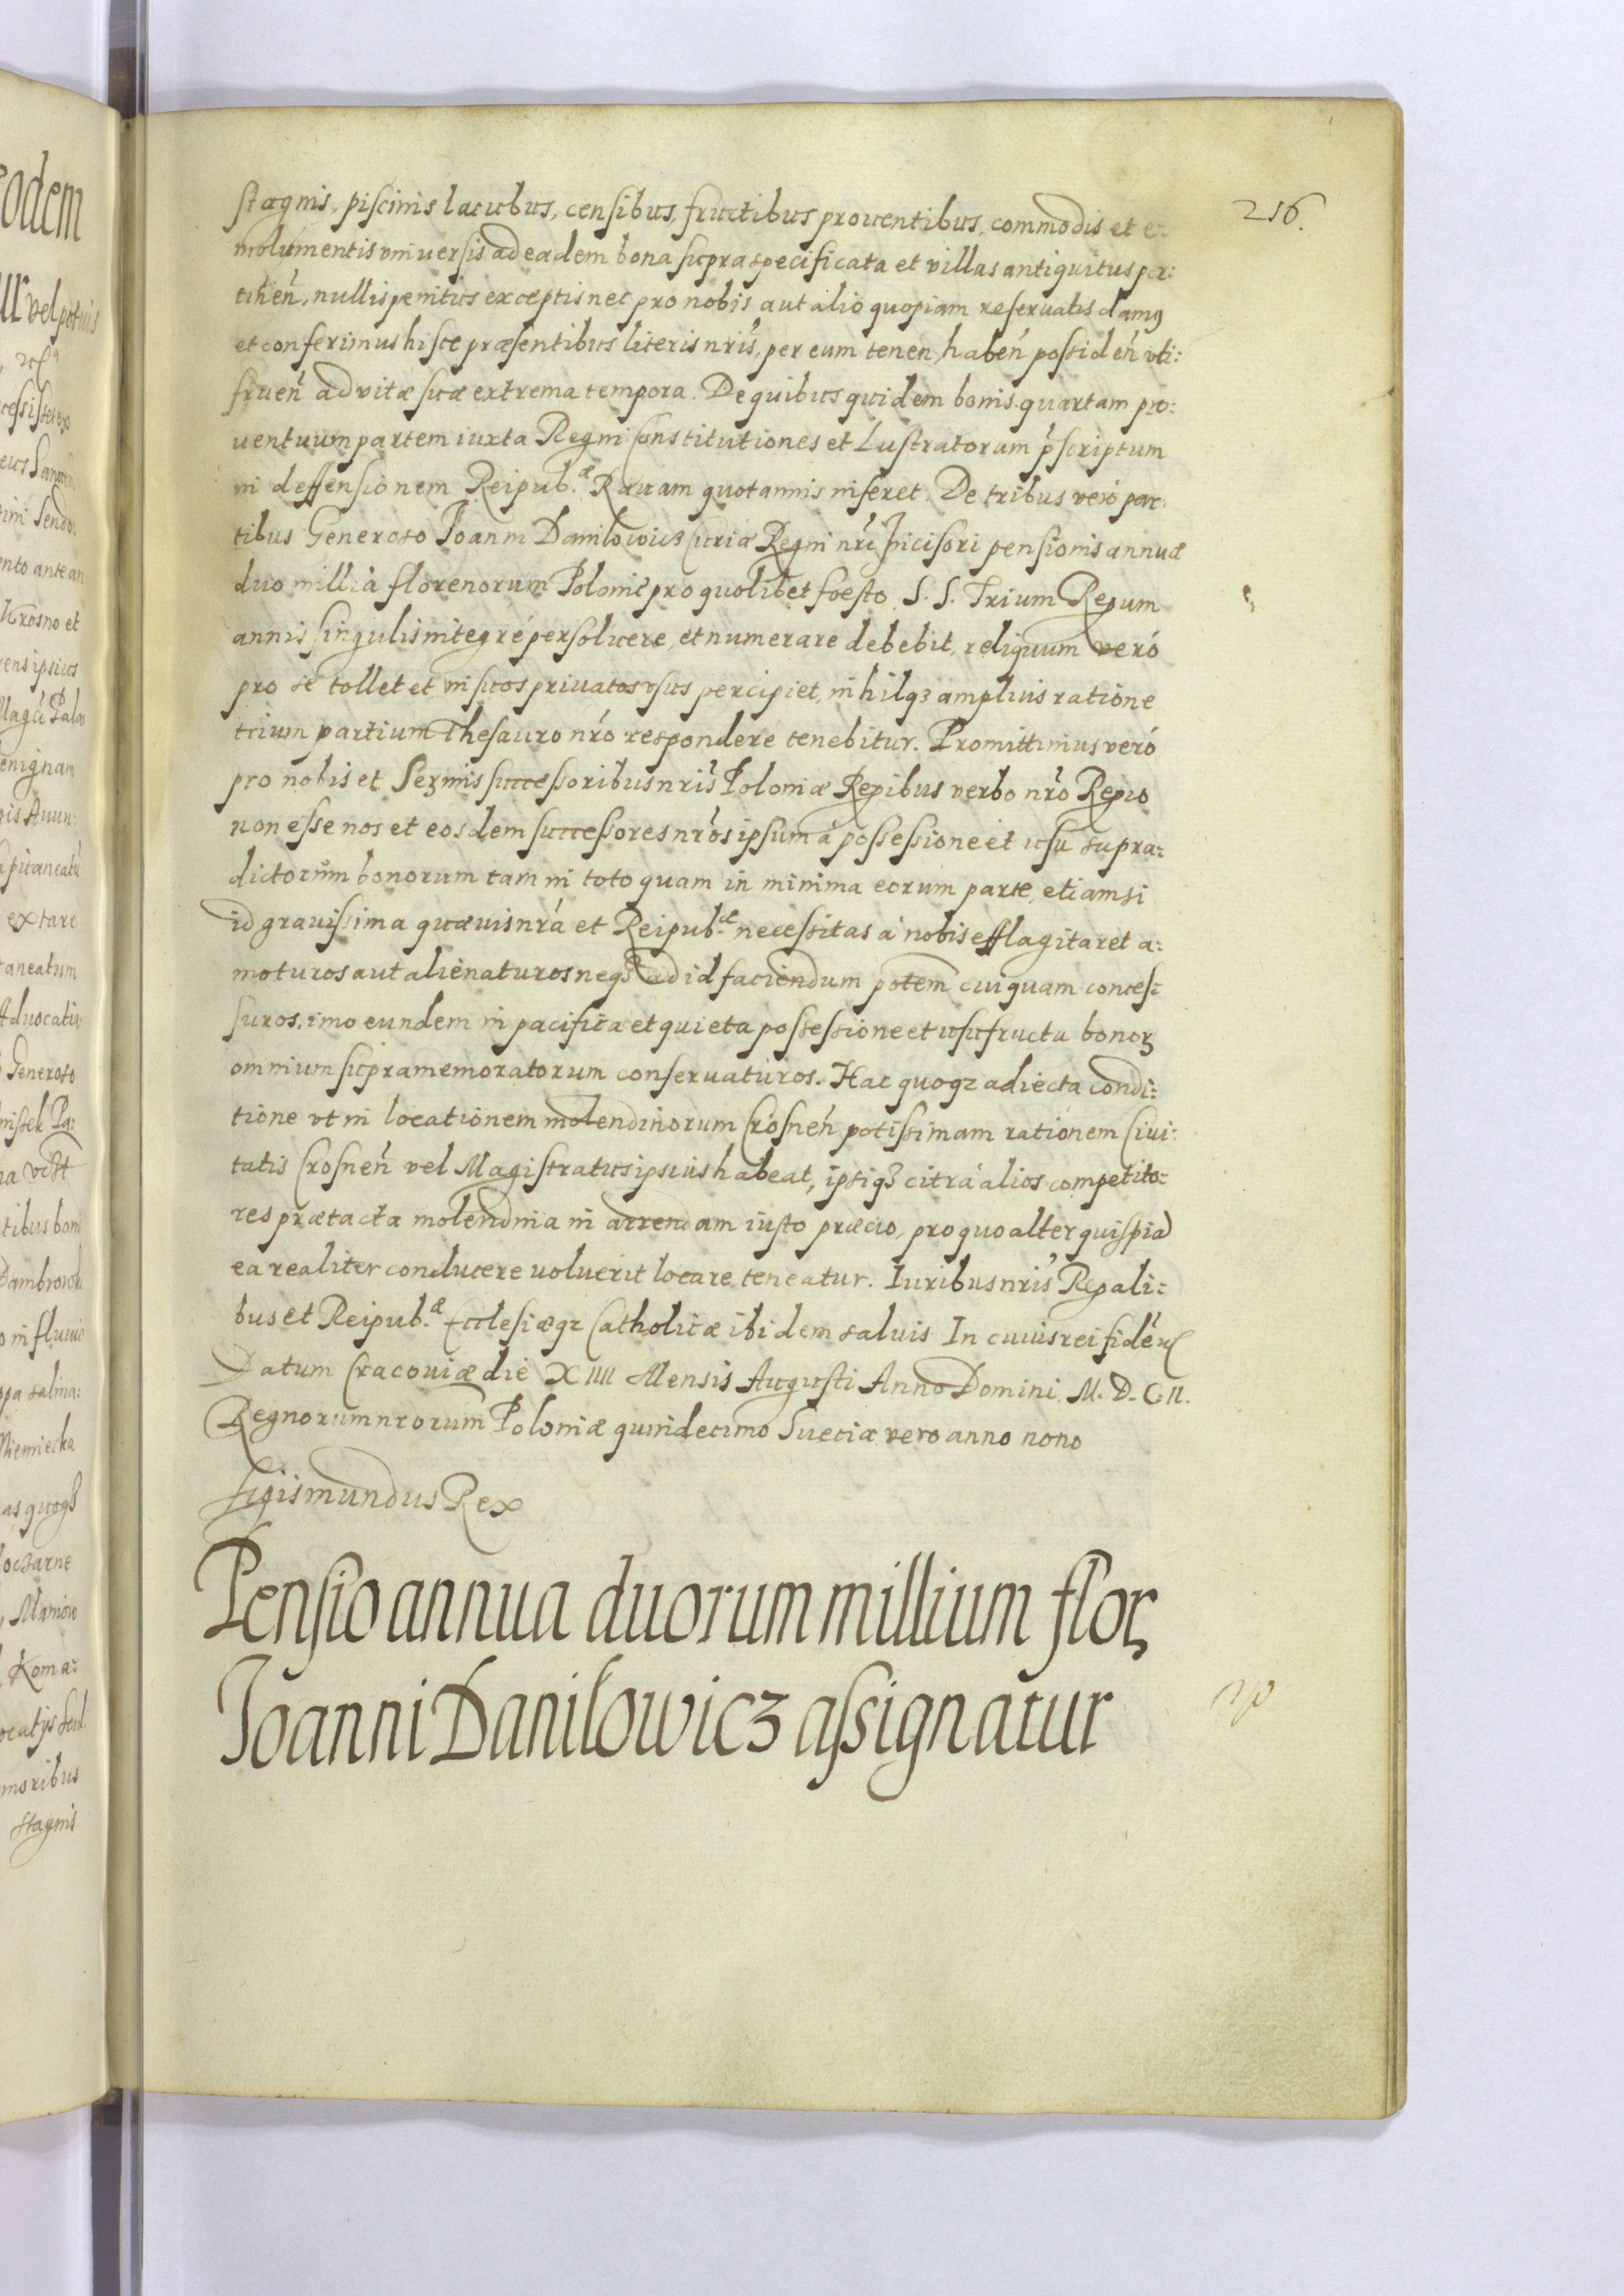 216.
stagnis, piscinis lacubus, censibus, fructibus prouentibus, commodis et e=
molumentis vniuersis ad eadem bona supraspecificata et villas antiquitus per=
tinen̄, nullis penitus exceptis nec pro nobis aut alio quopiam reseruatis damꝯ
et conferimus hisce præsentibus literis nr̄is, per eum tenen̄, haben̄ possiden̄ vti=
fruen̄ ad vitæ suæ extrema tempora. De quibus quidem bonis quartam pro=
uentuum partem iuxta Regni Constitutiones et Lustratorum p̄scriptum
in deffensionem Reipub.æ Rauam quotannis inferet. De tribus vero par=
tibus Generoso Ioanni Danilowicz Curiæ Regni nr̄i Incisori pensionis annuæ
duo millia florenorum Polonic̄ pro quolibet foesto S. S. Trium Regum
annis singulis integrè persoluere, et numerare debebit, reliquum veró
pro se tollet et in suos priuatos vsus percipiet, nihilqꝫ amplius ratione
trium partium Thesauro nr̄o respondere tenebitur. Promittimus veró
pro nobis et Sermis successoribus nr̄is Poloniæ Regibus verbo nr̄o Regio
non esse nos et eosdem successores nr̄os ipsum á possessione et usu supra=
dictorum bonorum tam in toto quam in minima eorum parte, etiamsi
id grauissima quæuis nr̄a et Reipub.æ necessitas á nobis efflagitaret a=
moturos aut alienaturos neqꝫ ad id faciendum potem̄ cuiquam conces=
suros, imo eundem in pacifica et quieta possessione et usufructu bonoꝝ
omnium supramemoratorum conseruaturos. Hac quoqꝫ adiecta condi=
tione vt in locationem molendinorum Crosnen̄ potissimam rationem Ciui=
tatis Crosnen̄ vel Magistratus ipsius habeat, ipsiqꝫ citrá alios competito=
res prætacta molendina in arrendam iusto præcio, pro quo alter quispiā
ea realiter conducere uoluerit locare teneatur. Iuribus nr̄is Regali=
bus et Reipub.æ Ecclesiæqꝫ Catholicæ ibidem saluis In cuius rei fidem
Datum Cracouiæ die XIIII Mensis Augusti Anno Domini M. D. C. II.
Regnorum nrorum Poloniæ quindecimo Sueciæ vero anno nono
Sigismundus Rex
Pensio annua duorum millium floꝝ
Ioanni Danilowicz assignatur